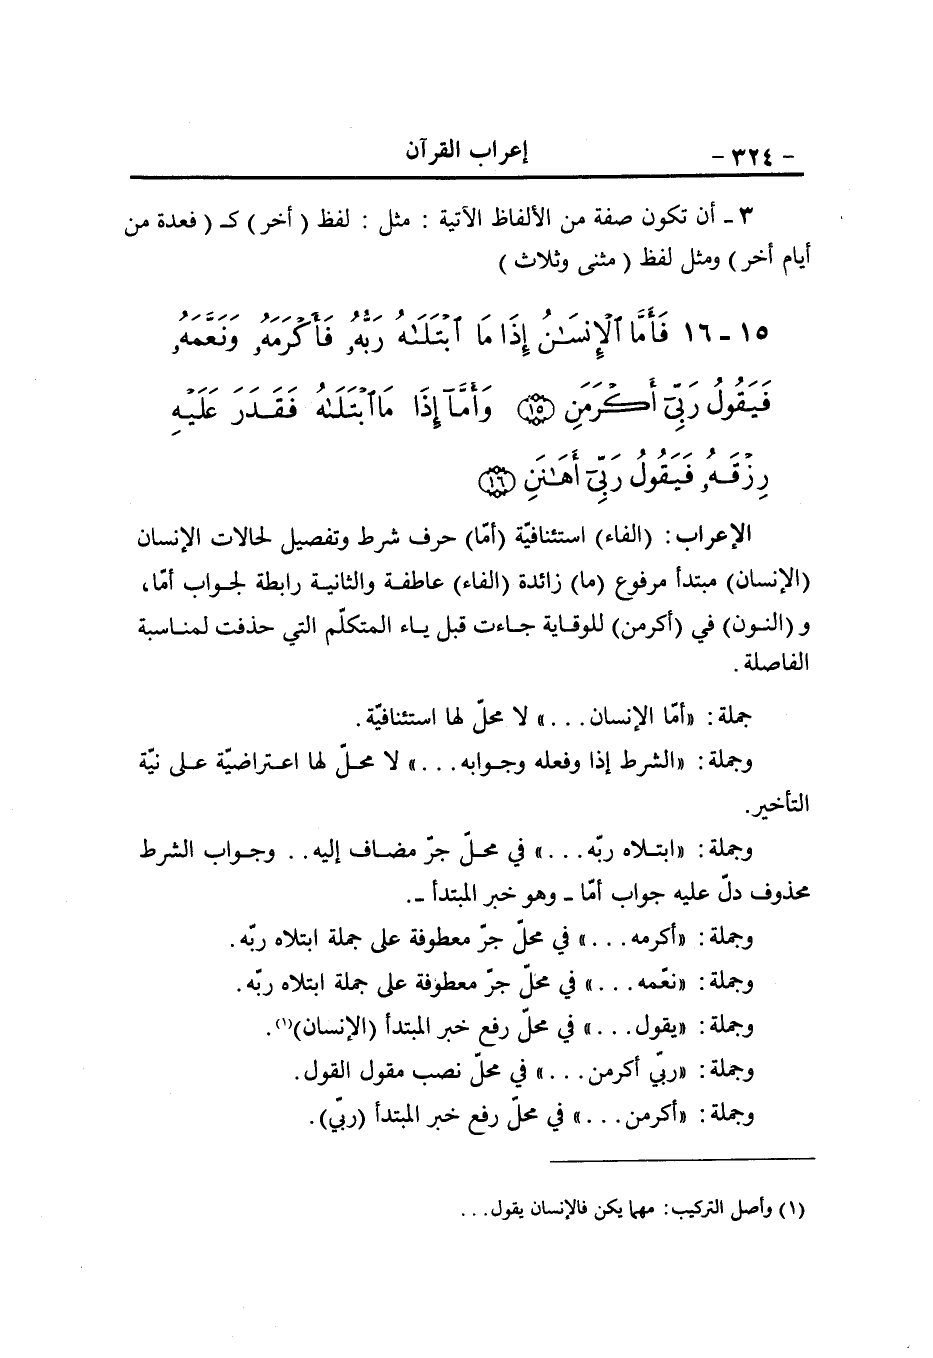 - ٣٢٤ - إعراب القرآن
٣ - أن تكون صفة من الألفاظ الآتية : مثل : لفظ ( أخر ) كـ ( فعدة من
أيام أخر ) ومثل لفظ ( مثنى وثلاث )
١٥ - ١٦ فَأَمَّا ٱلْإِنسَـٰنُ إِذَا مَا ٱبْتَلَىٰهُ رَبُّهُۥ فَأَكْرَمَهُۥ وَنَعَّمَهُۥ
فَيَقُولُ رَبِّىٓ أَكْرَمَنِ ﴿١٥﴾ وَأَمَّآ إِذَا مَا ٱبْتَلَىٰهُ فَقَدَرَ عَلَيْهِ
رِزْقَهُۥ فَيَقُولُ رَبِّىٓ أَهَـٰنَنِ ﴿١٦﴾
الإعراب : (الفاء) استئنافيّة (أمّا) حرف شرط وتفصيل لحالات الإنسان
(الإنسان) مبتدأ مرفوع (ما) زائدة (الفاء) عاطفة والثانية رابطة لجواب أمّا،
و (النون) في (أكرمن) للوقاية جاءت قبل ياء المتكلّم التي حذفت لمناسبة
الفاصلة .
جملة : «أمّا الإنسان . . .» لا محلّ لها استئنافيّة .
وجملة : «الشرط إذا وفعله وجوابه . . .» لا محلّ لها اعتراضيّة على نيّة
التأخير .
وجملة : «ابتلاه ربّه . . .» في محلّ جرّ مضاف إليه . . وجواب الشرط
محذوف دلّ عليه جواب أمّا - وهو خبر المبتدأ - .
وجملة : «أكرمه . . .» في محلّ جرّ معطوفة على جملة ابتلاه ربّه .
وجملة : «نعّمه . . .» في محلّ جرّ معطوفة على جملة ابتلاه ربّه .
وجملة : «يقول . . .» في محلّ رفع خبر المبتدأ (الإنسان)(١) .
وجملة : «ربّي أكرمن . . .» في محلّ نصب مقول القول .
وجملة : «أكرمن . . .» في محلّ رفع خبر المبتدأ (ربّي) .
(١) وأصل التركيب : مهما يكن فالإنسان يقول . . .